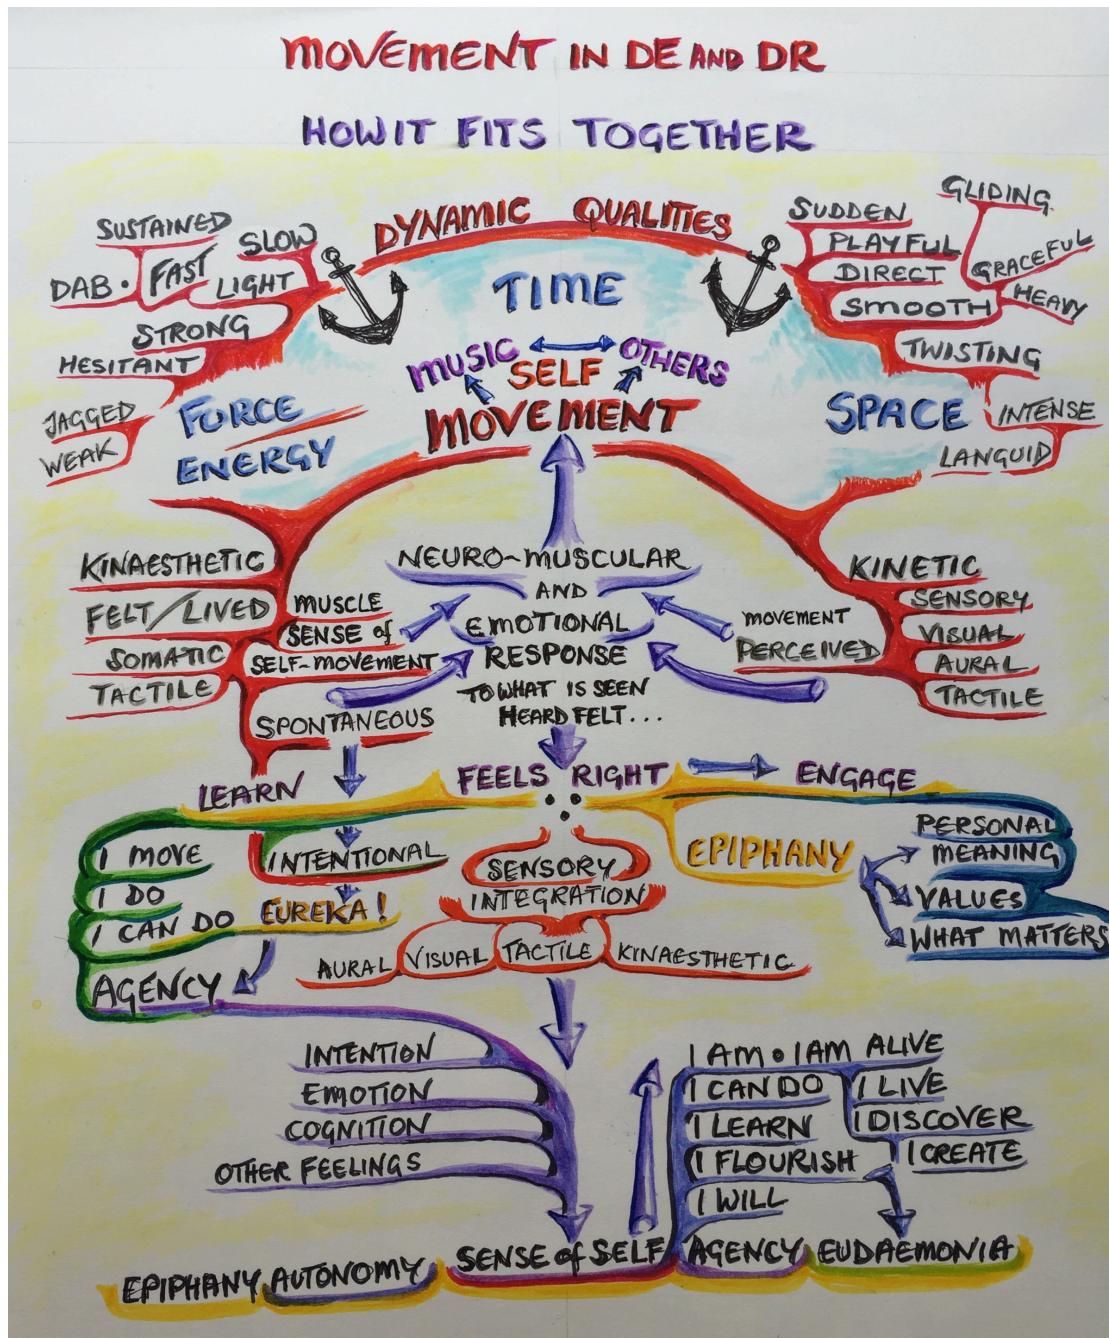 MOVEMENT IN DE AND DR
HOW IT FITS TOGETHER
DYNAMIC QUALITIES
SUSTAINED
SLOW
DAB • FAST
LIGHT
STRONG
HESITANT
JAGGED
WEAK
FORCE
ENERGY
TIME
MUSIC OTHERS
SELF
MOVEMENT
SPACE
GLIDING
SUDDEN
PLAYFUL
GRACEFUL
DIRECT
HEAVY
SMOOTH
TWISTING
INTENSE
LANGUID
KINAESTHETIC
FELT/LIVED
SOMATIC
TACTILE
MUSCLE
SENSE of
SELF-MOVEMENT
SPONTANEOUS
NEURO-MUSCULAR
AND
EMOTIONAL
RESPONSE
TO WHAT IS SEEN
HEARD FELT...
MOVEMENT
PERCEIVED
KINETIC
SENSORY
VISUAL
AURAL
TACTILE
LEARN
FEELS RIGHT
ENGAGE
I MOVE
I DO
I CAN DO
AGENCY
INTENTIONAL
EUREKA!
SENSORY
INTEGRATION
AURAL VISUAL TACTILE KINAESTHETIC
EPIPHANY
PERSONAL
MEANING
VALUES
WHAT MATTERS
INTENTION
EMOTION
COGNITION
OTHER FEELINGS
I AM • I AM ALIVE
I CAN DO I LIVE
I LEARN I DISCOVER
I FLOURISH I CREATE
I WILL
EPIPHANY AUTONOMY SENSE of SELF AGENCY EUDAEMONIA